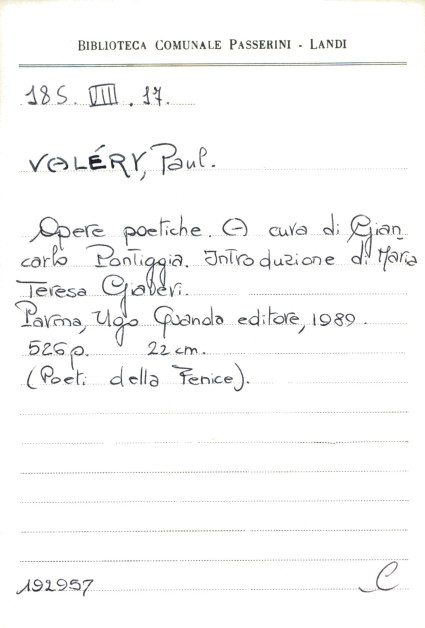 BIBLIOTECA COMUNALE PASSERINI - LANDI
185. VIII. 17.
VALÉRY, Paul.
Opere poetiche. A cura di Gian
carlo Pontiggia. Introduzione di Maria
Teresa Giaveri.
Parma, Ugo Guanda editore, 1989.
526 p. 22 cm.
(Poeti della Fenice).
192957 C